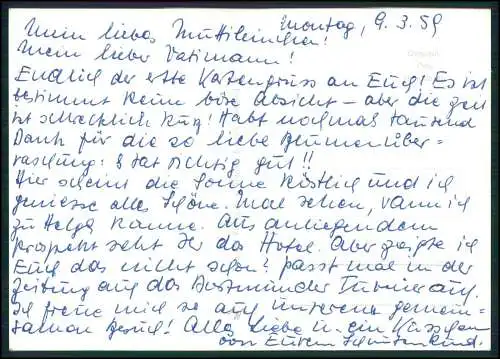 Montag, 9.3.59
Mein liebes Muttileinchen!
Mein lieber Vatimann!
Endlich der erste Kartengruss an Euch! Es ist
bestimmt keine böse Absicht – aber die Zeit
ist schrecklich kurz! Habt nochmals tausend
Dank für die so liebe Blumenüber=
raschung: tat richtig gut!!
Hier scheint die Sonne köstlich und ich
geniesse alles Schöne. Mal sehen, wann ich
zu Helga komme. Aus anliegendem
Prospekt seht Ihr das Hotel. Aber zeigte ich
Euch das nicht schon? Passt mal in der
Zeitung auf das Dortmunder Turnier auf.
Ich freue mich so auf unseren gemein=
samen Besuch! Alles Liebe u. ein Küsschen
von Eurem